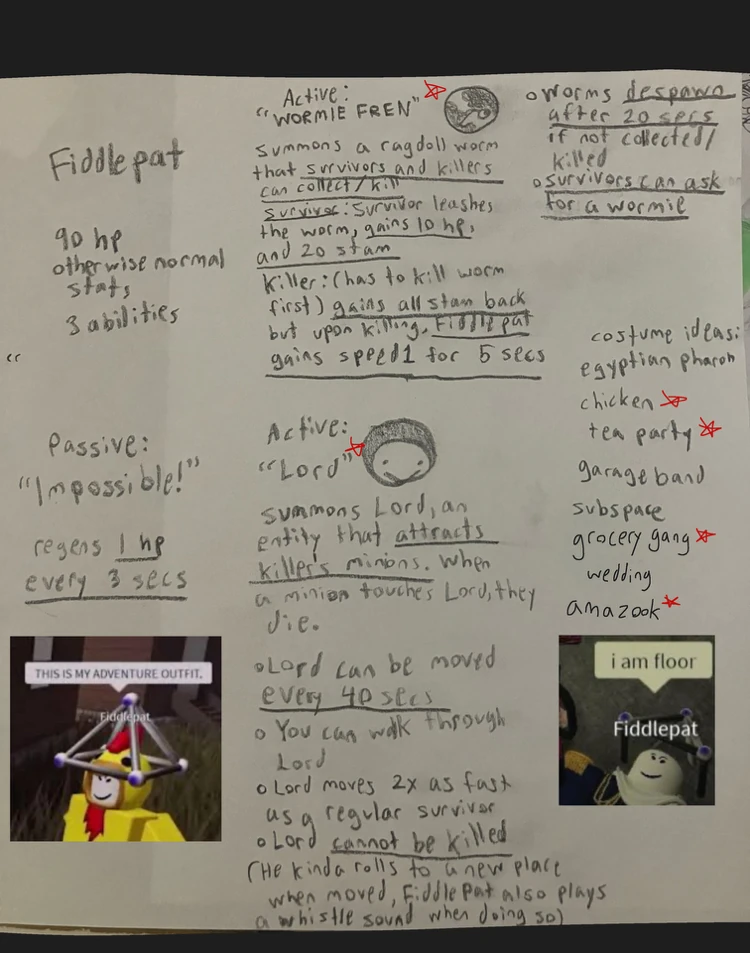 Fiddlepat
90 hp
otherwise normal
stats
3 abilities
"
Passive:
"Impossible!"
regens 1 hp
every 3 secs
THIS IS MY ADVENTURE OUTFIT.
Fiddlepat
Active:
"WORMIE FREN"
summons a ragdoll worm
that survivors and killers
can collect/kill
survivor: Survivor leashes
the worm, gains 10 hp,
and 20 stam
Killer: (has to kill worm
first) gains all stam back
but upon killing, Fiddlepat
gains speed1 for 5 secs
Active:
"Lord"
summons Lord, an
entity that attracts
killer's minions. When
a minion touches Lord, they
die.
Lord can be moved
every 40 secs
You can walk through
Lord
Lord moves 2x as fast
as a regular survivor
Lord cannot be killed
(He kinda rolls to a new place
when moved, Fiddlepat also plays
a whistle sound when doing so)
worms despawn
after 20 secs
if not collected/
killed
survivors can ask
for a wormie
costume ideas:
egyptian pharoh
chicken
tea party
garage band
subspace
grocery gang
wedding
amazook
i am floor
Fiddlepat